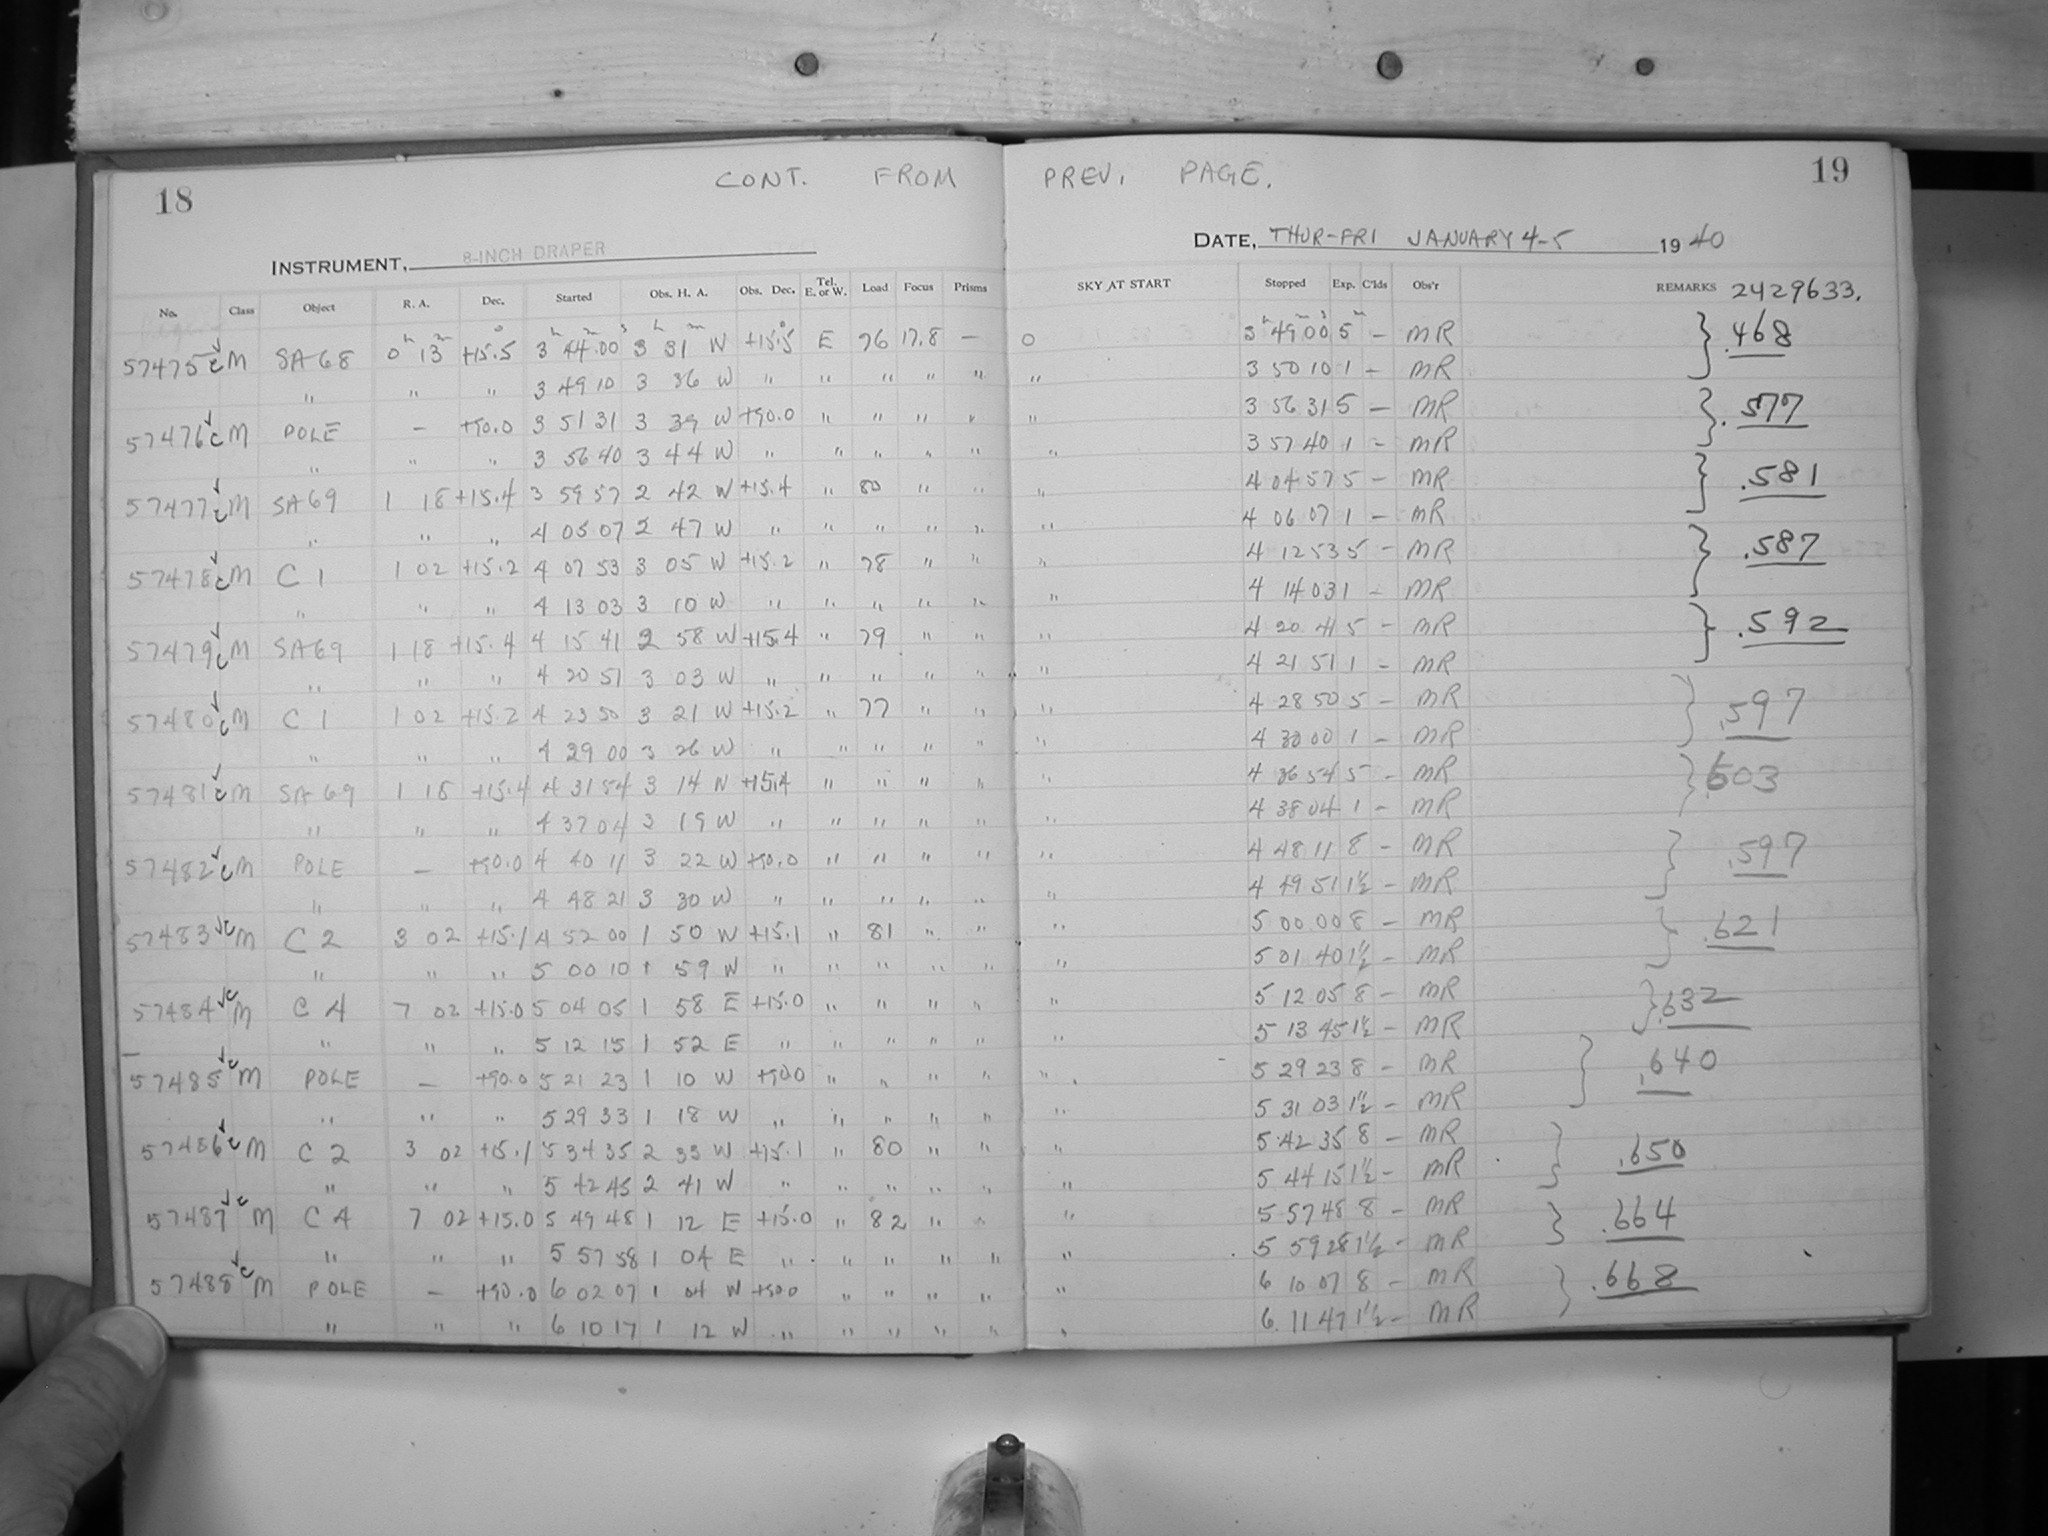 18 CONT. FROM PREV. PAGE. 19
INSTRUMENT, 8-INCH DRAPER DATE, THUR-FRI JANUARY 4-5 1940
No. Class Object R. A. Dec. Started Obs. H. A. Obs. Dec. Tel. E. or W. Load Focus Prisms SKY AT START Stopped Exp. C'lds Obs'r REMARKS 2429633.
57475 c M SA 68 0h 13m +15.5° 3h 44m 00s 3h 31m W +15.5° E 76 17.8 — 0 3h 49m 00s 5m – MR } .468
" " " 3 49 10 3 36 W " " " " " " 3 50 10 1 – MR
57476 c M POLE — +90.0 3 51 31 3 39 W +90.0 " " " " " 3 56 31 5 – MR } .577
" " " 3 56 40 3 44 W " " " " " " 3 57 40 1 – MR
57477 c M SA 69 1 18 +15.4 3 59 57 2 42 W +15.4 " 80 " " " 4 04 57 5 – MR } .581
" " " 4 05 07 2 47 W " " " " " " 4 06 07 1 – MR
57478 c M C 1 1 02 +15.2 4 07 53 3 05 W +15.2 " 78 " " " 4 12 53 5 – MR } .587
" " " 4 13 03 3 10 W " " " " " " 4 14 03 1 – MR
57479 c M SA 69 1 18 +15.4 4 15 41 2 58 W +15.4 " 79 " " " 4 20 41 5 – MR } .592
" " " 4 20 51 3 03 W " " " " " " 4 21 51 1 – MR
57480 c M C 1 1 02 +15.2 4 23 50 3 21 W +15.2 " 77 " " " 4 28 50 5 – MR } .597
" " " 4 29 00 3 26 W " " " " " " 4 30 00 1 – MR
57481 c M SA 69 1 18 +15.4 4 31 54 3 14 W +15.4 " " " " " 4 36 54 5 – MR } .603
" " " 4 37 04 3 19 W " " " " " " 4 38 04 1 – MR
57482 c M POLE — +90.0 4 40 11 3 22 W +90.0 " " " " " 4 48 11 8 – MR } .597
" " " 4 48 21 3 30 W " " " " " " 4 49 51 1½ – MR
57483 c M C 2 3 02 +15.1 4 52 00 1 50 W +15.1 " 81 " " " 5 00 00 8 – MR } .621
" " " 5 00 10 1 59 W " " " " " " 5 01 40 1½ – MR
57484 c M C 4 7 02 +15.0 5 04 05 1 58 E +15.0 " " " " " 5 12 05 8 – MR } .632
" " " 5 12 15 1 52 E " " " " " " 5 13 45 1½ – MR
57485 c M POLE — +90.0 5 21 23 1 10 W +90.0 " " " " " 5 29 23 8 – MR } .640
" " " 5 29 33 1 18 W " " " " " " 5 31 03 1½ – MR
57486 c M C 2 3 02 +15.1 5 34 35 2 33 W +15.1 " 80 " " " 5 42 35 8 – MR } .650
" " " 5 42 45 2 41 W " " " " " " 5 44 15 1½ – MR
57487 c M C 4 7 02 +15.0 5 49 48 1 12 E +15.0 " 82 " " " 5 57 48 8 – MR } .664
" " " 5 57 58 1 04 E " " " " " " 5 59 28 1½ – MR
57488 c M POLE — +90.0 6 02 07 1 04 W +90.0 " " " " " 6 10 07 8 – MR } .668
" " " 6 10 17 1 12 W " " " " " " 6 11 47 1½ – MR